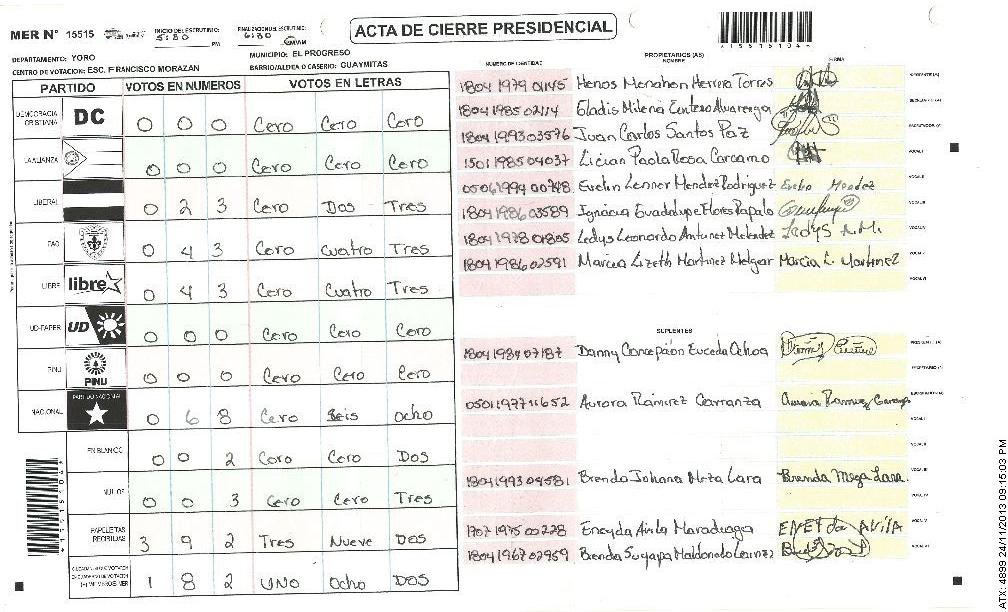 ACTA DE CIERRE PRESIDENCIAL
MER N° 15515
INICIO DEL ESCRUTINIO: 5:80 PM
FINALIZACION DEL ESCRUTINIO: 6:80
DEPARTAMENTO: YORO
MUNICIPIO: EL PROGRESO
CENTRO DE VOTACION: ESC. FRANCISCO MORAZAN
BARRIO/ALDEA O CASERIO: GUAYMITAS
15515104
PARTIDO VOTOS EN NUMEROS VOTOS EN LETRAS
DEMOCRACIA CRISTIANA DC 0 0 0 Cero Cero Cero
LA ALIANZA 0 0 0 Cero Cero Cero
LIBERAL 0 2 3 Cero Dos Tres
PAC 0 4 3 Cero Cuatro Tres
LIBRE libre 0 4 3 Cero Cuatro Tres
UD-FAPER UD 0 0 0 Cero Cero Cero
PINU PINU 0 0 0 Cero Cero Cero
NACIONAL PARTIDO NACIONAL 0 6 8 Cero Seis Ocho
EN BLANCO 0 0 2 Cero Cero Dos
NULOS 0 0 3 Cero Cero Tres
PAPELETAS RECIBIDAS 3 9 2 Tres Nueve Dos
1 8 2 Uno Ocho Dos
PROPIETARIOS (AS)
NUMERO DE IDENTIDAD NOMBRE FIRMA
1804 1979 01145 Henos Menahen Herrera Torres PRESIDENTE (A)
1804 1985 02114 Gladis Milena Centeno Alvarenga SECRETARIO (A)
1804 1993 03576 Juan Carlos Santos Paz ESCRUTADOR (A)
1501 1985 04037 Lilian Paola Rosa Carcamo VOCAL I
0506 1994 00748 Evelin Lenner Mendez Rodriguez Evelin Mendez VOCAL II
1804 1986 03589 Ignacia Guadalupe Flores Papalo VOCAL III
1804 1978 01805 Ledys Leonardo Antunez Melendez Ledys A.M. VOCAL IV
1804 1986 02591 Marcia Lizeth Martinez Melgar Marcia L. Martinez VOCAL V
VOCAL VI
SUPLENTES
1804 1984 07187 Danny Concepción Euceda Ochoa PRESIDENTE (A)
SECRETARIO (A)
0501 1977 11652 Aurora Ramirez Carranza ESCRUTADOR (A)
VOCAL I
VOCAL II
1804 1993 04581 Brenda Johana Meza Lara Brenda Meza Lara. VOCAL III
VOCAL IV
1707 1975 00228 Eneyda Avila Maradiaga ENEYda AVILA VOCAL V
1804 1967 02959 Brenda Suyapa Maldonado VOCAL VI
ATX: 4899 24/11/2013 09:15:03 PM